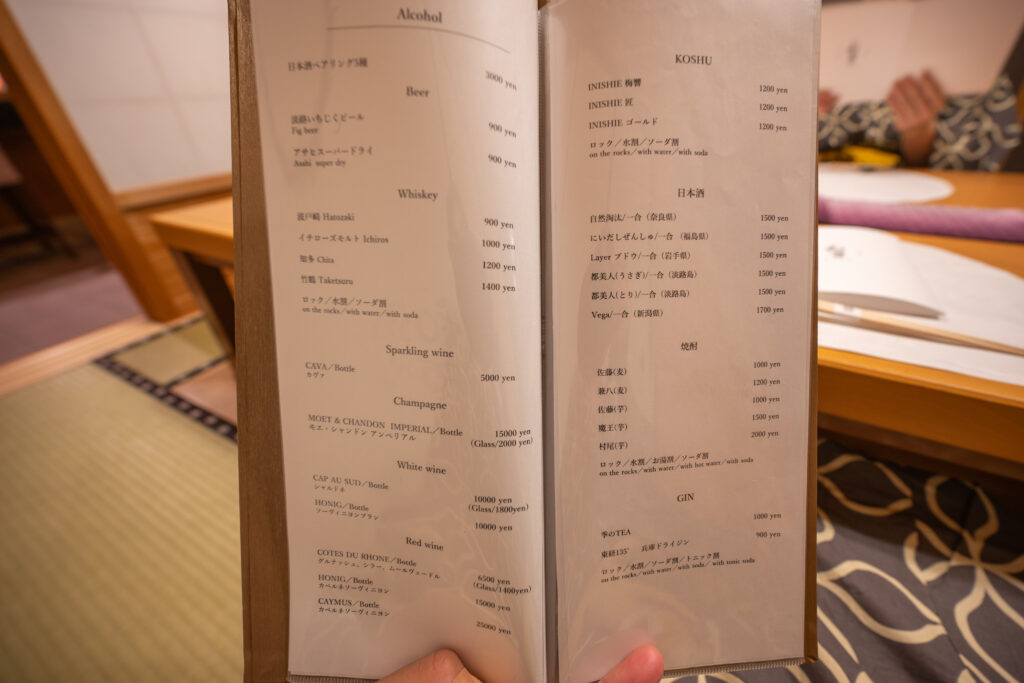 Alcohol
日本酒ペアリング3種 3000 yen
Beer
淡路いちじくビール 900 yen
Fig beer
アサヒスーパードライ 900 yen
Asahi super dry
Whiskey
波戸崎 Hatozaki 900 yen
イチローズモルト Ichiros 1000 yen
知多 Chita 1200 yen
竹鶴 Taketsuru 1400 yen
ロック／水割／ソーダ割
on the rocks／with water／with soda
Sparkling wine
CAVA／Bottle 5000 yen
カヴァ
Champagne
MOET & CHANDON IMPERIAL／Bottle 15000 yen
モエ・シャンドン アンペリアル (Glass/2000 yen)
White wine
CAP AU SUD／Bottle 10000 yen
シャルドネ (Glass/1800yen)
HONIG／Bottle 10000 yen
ソーヴィニヨンブラン
Red wine
COTES DU RHONE／Bottle 6500 yen
グルナッシュ、シラー、ムールヴェードル (Glass/1400yen)
HONIG／Bottle 15000 yen
カベルネソーヴィニヨン
CAYMUS／Bottle 25000 yen
カベルネソーヴィニヨン
KOSHU
INISHIE 梅響 1200 yen
INISHIE 匠 1200 yen
INISHIE ゴールド 1200 yen
ロック／水割／ソーダ割
on the rocks／with water／with soda
日本酒
自然淘汰/一合（奈良県） 1500 yen
にいだしぜんしゅ/一合（福島県） 1500 yen
Layer ブドウ/一合（岩手県） 1500 yen
都美人(うさぎ)/一合（淡路島） 1500 yen
都美人(とり)/一合（淡路島） 1500 yen
Vega/一合（新潟県） 1700 yen
焼酎
佐藤(麦) 1000 yen
兼八(麦) 1200 yen
佐藤(芋) 1000 yen
魔王(芋) 1500 yen
村尾(芋) 2000 yen
ロック／水割／お湯割／ソーダ割
on the rocks／with water／with hot water／with soda
GIN
季のTEA 1000 yen
東経135° 兵庫ドライジン 900 yen
ロック／水割／ソーダ割／トニック割
on the rocks／with water／with soda／with tonic soda